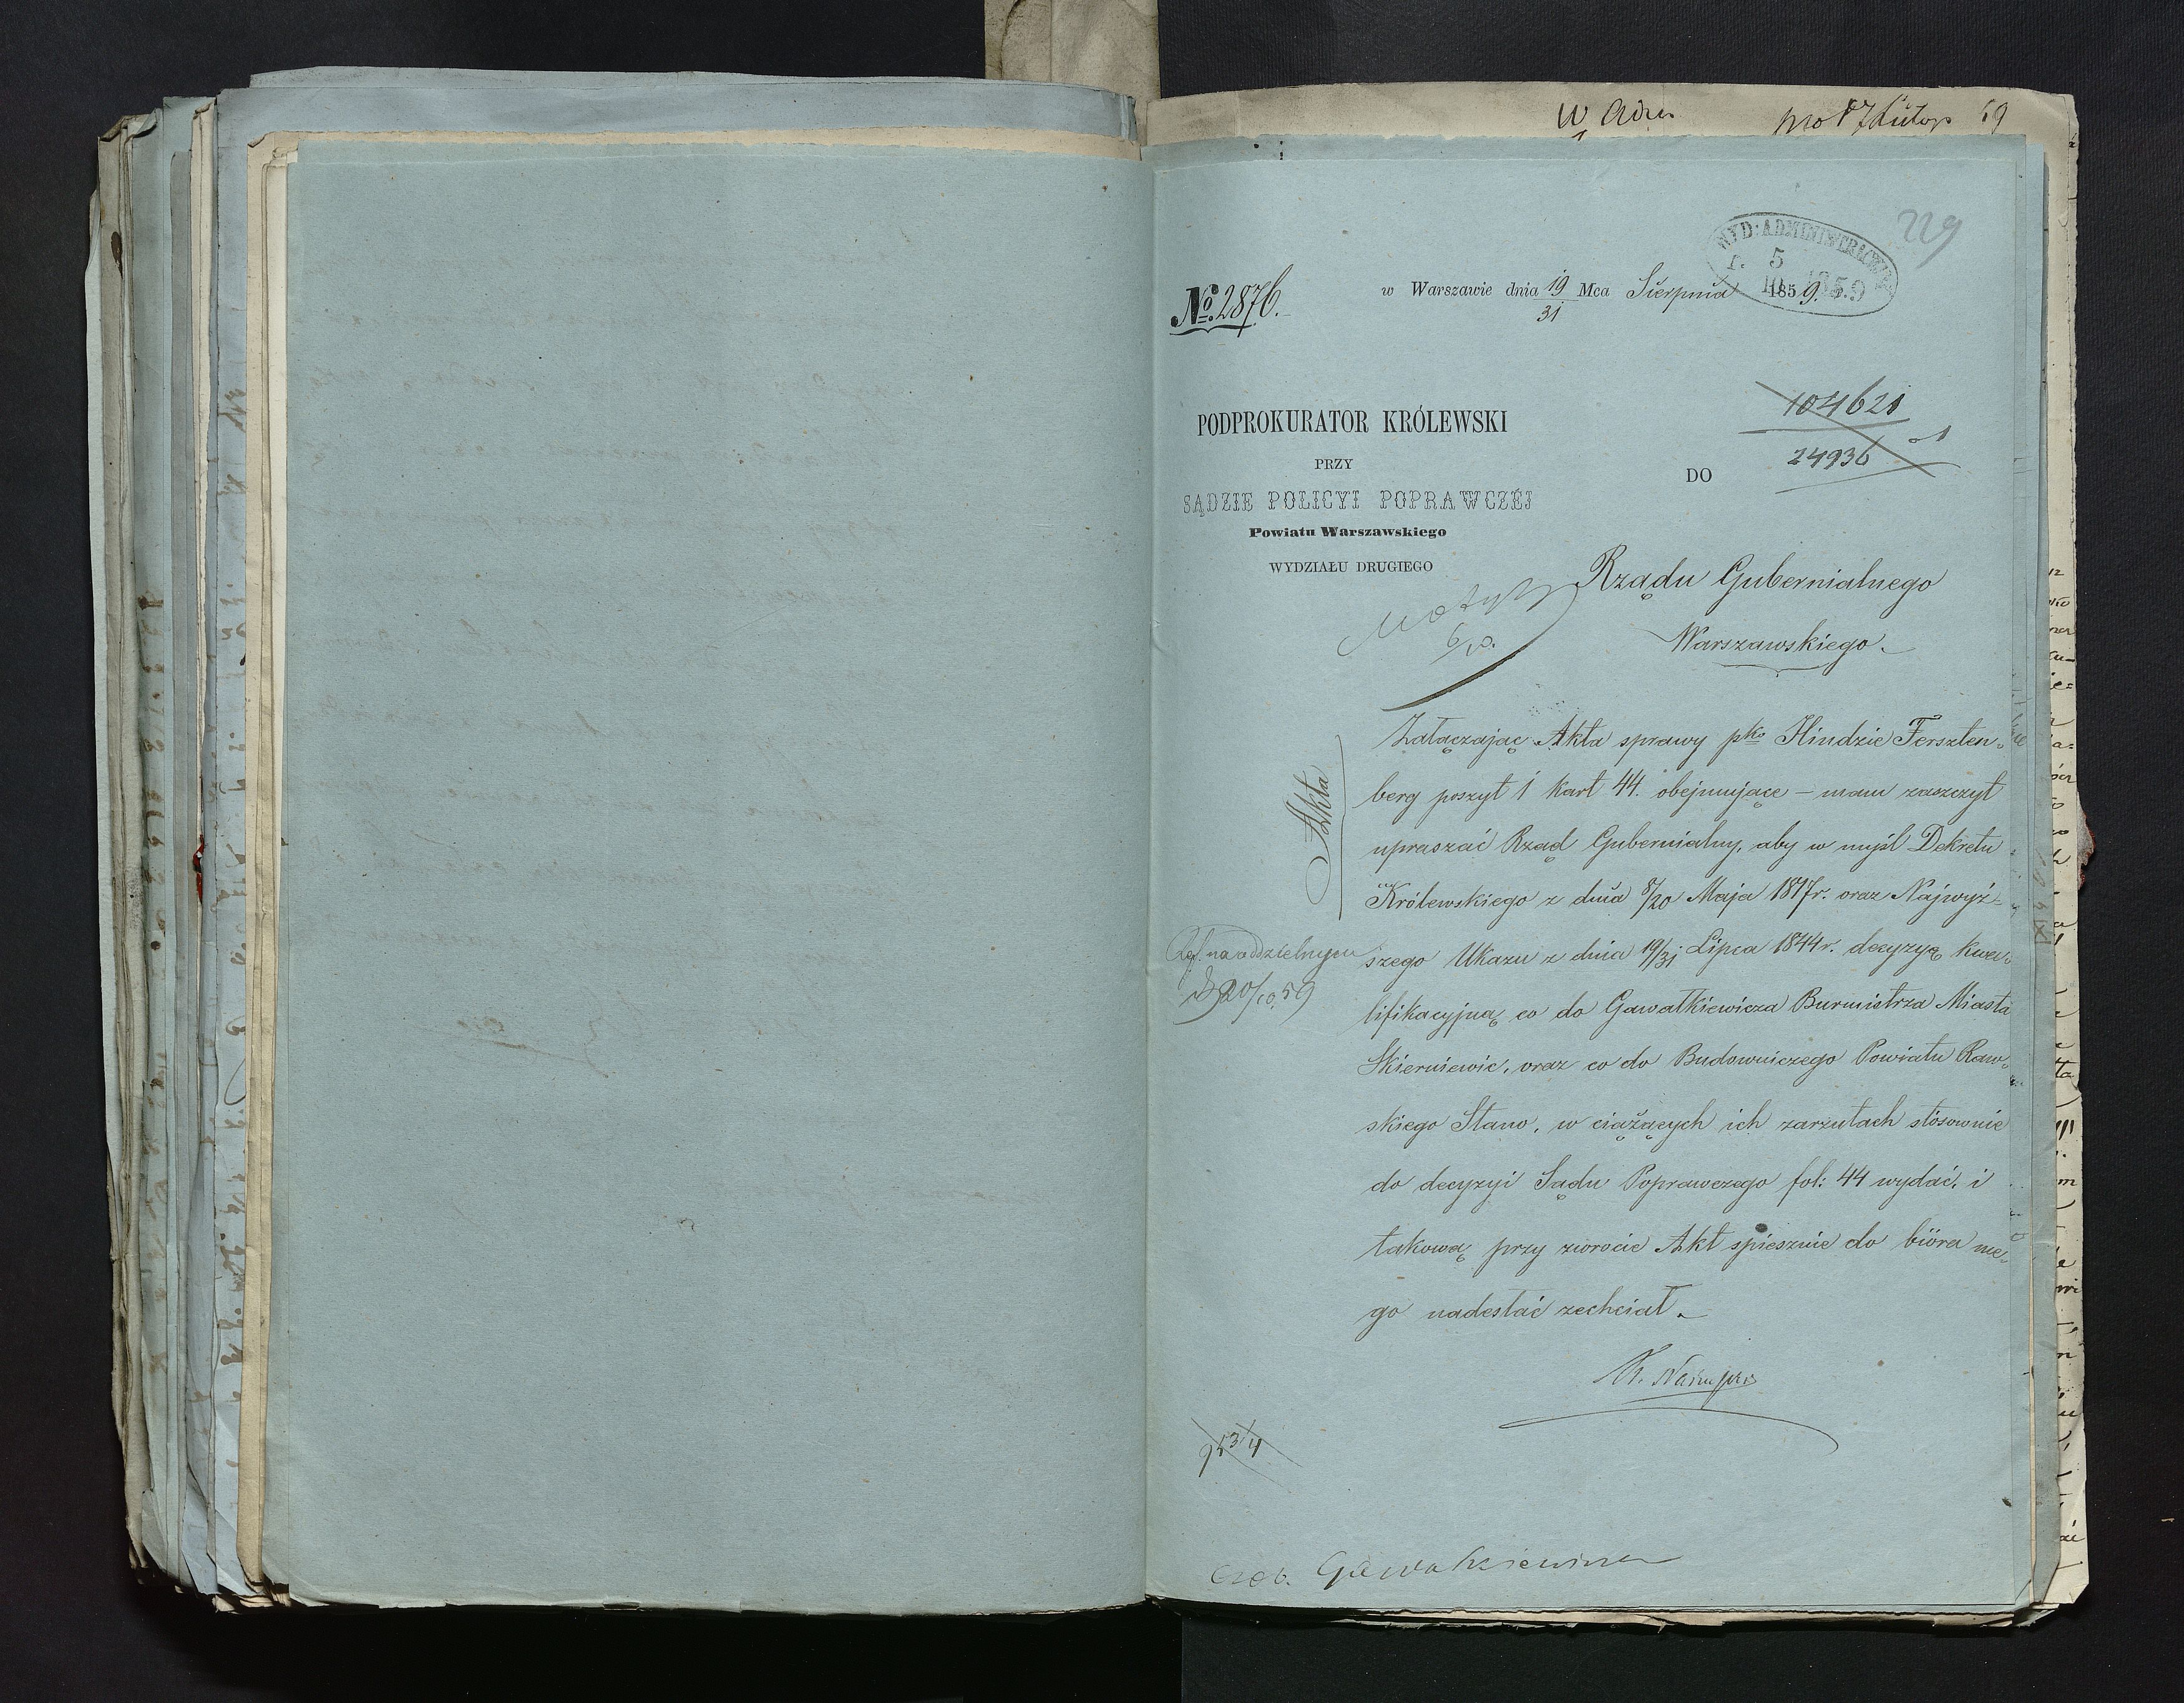 229
WYD: ADMINISTRACYJNY
r. 5
10 1859
№ 2876.
w Warszawie dnia 19/31 Mca Sierpnia 1859 r.
104621
24936
PODPROKURATOR KRÓLEWSKI
PRZY
SĄDZIE POLICYI POPRAWCZÉJ
Powiatu Warszawskiego
WYDZIAŁU DRUGIEGO
DO
Rządu Gubernialnego
Warszawskiego.
6/10.
Akta
Załączając Akta sprawy pko Hindzie Ferszten-
berg poszyt 1 kart 44. obejmujące – mam zaszczyt
upraszać Rząd Gubernialny, aby w myśl Dekretu
Królewskiego z dnia 8/20 Maja 1817r. oraz Najwyż-
szego Ukazu z dnia 19/31 Lipca 1844r. decyzyą kwa-
lifikacyjną co do Gawałkiewicza Burmistrza Miasta
Skierniewic, oraz co do Budowniczego Powiatu Raw-
skiego Stano, w ciążących ich zarzutach stósownie
do decyzyi Sądu Poprawczego fol: 44 wydać, i
takową przy zwrocie Akt spiesznie do bióra me-
go nadesłać zechciał.
na oddzielnym
20/10 59
9534
Gawałkiewicza